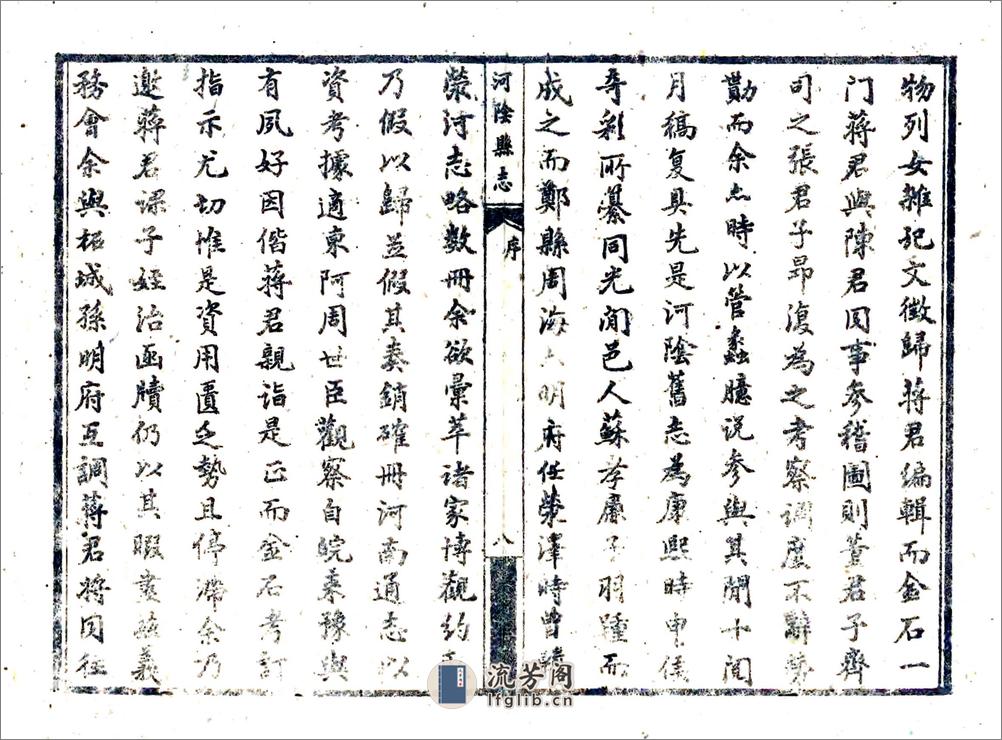 物列女雜記文徵歸蔣君編輯而金石一
门蔣君與陳君同事參稽圖則董君子齊
司之張君子昂復為之考察調度不辭勞
勩而余亦時以管蠡臆说參與其間十閱
月稿复具先是河陰舊志為康熙時申侯
奇彩所纂同光间邑人蘇孝廉子羽踵而
成之而鄭縣周海六明府任滎澤時曾
河陰縣志
序
八
滎河志略数冊余欲彙萃诸家博觀约
乃假以歸並假其奏銷確冊河南通志以
資考據適東阿周世臣觀察自皖来豫與
有夙好因偕蔣君親詣是正而金石考訂
指示尤切惟是資用匱乏勢且停滞余乃
邀蔣君課子姪治函牘仍以其暇畫兹義
務會余與柘城孫明府互調蔣君將同往
流芳阁
lfglib.cn